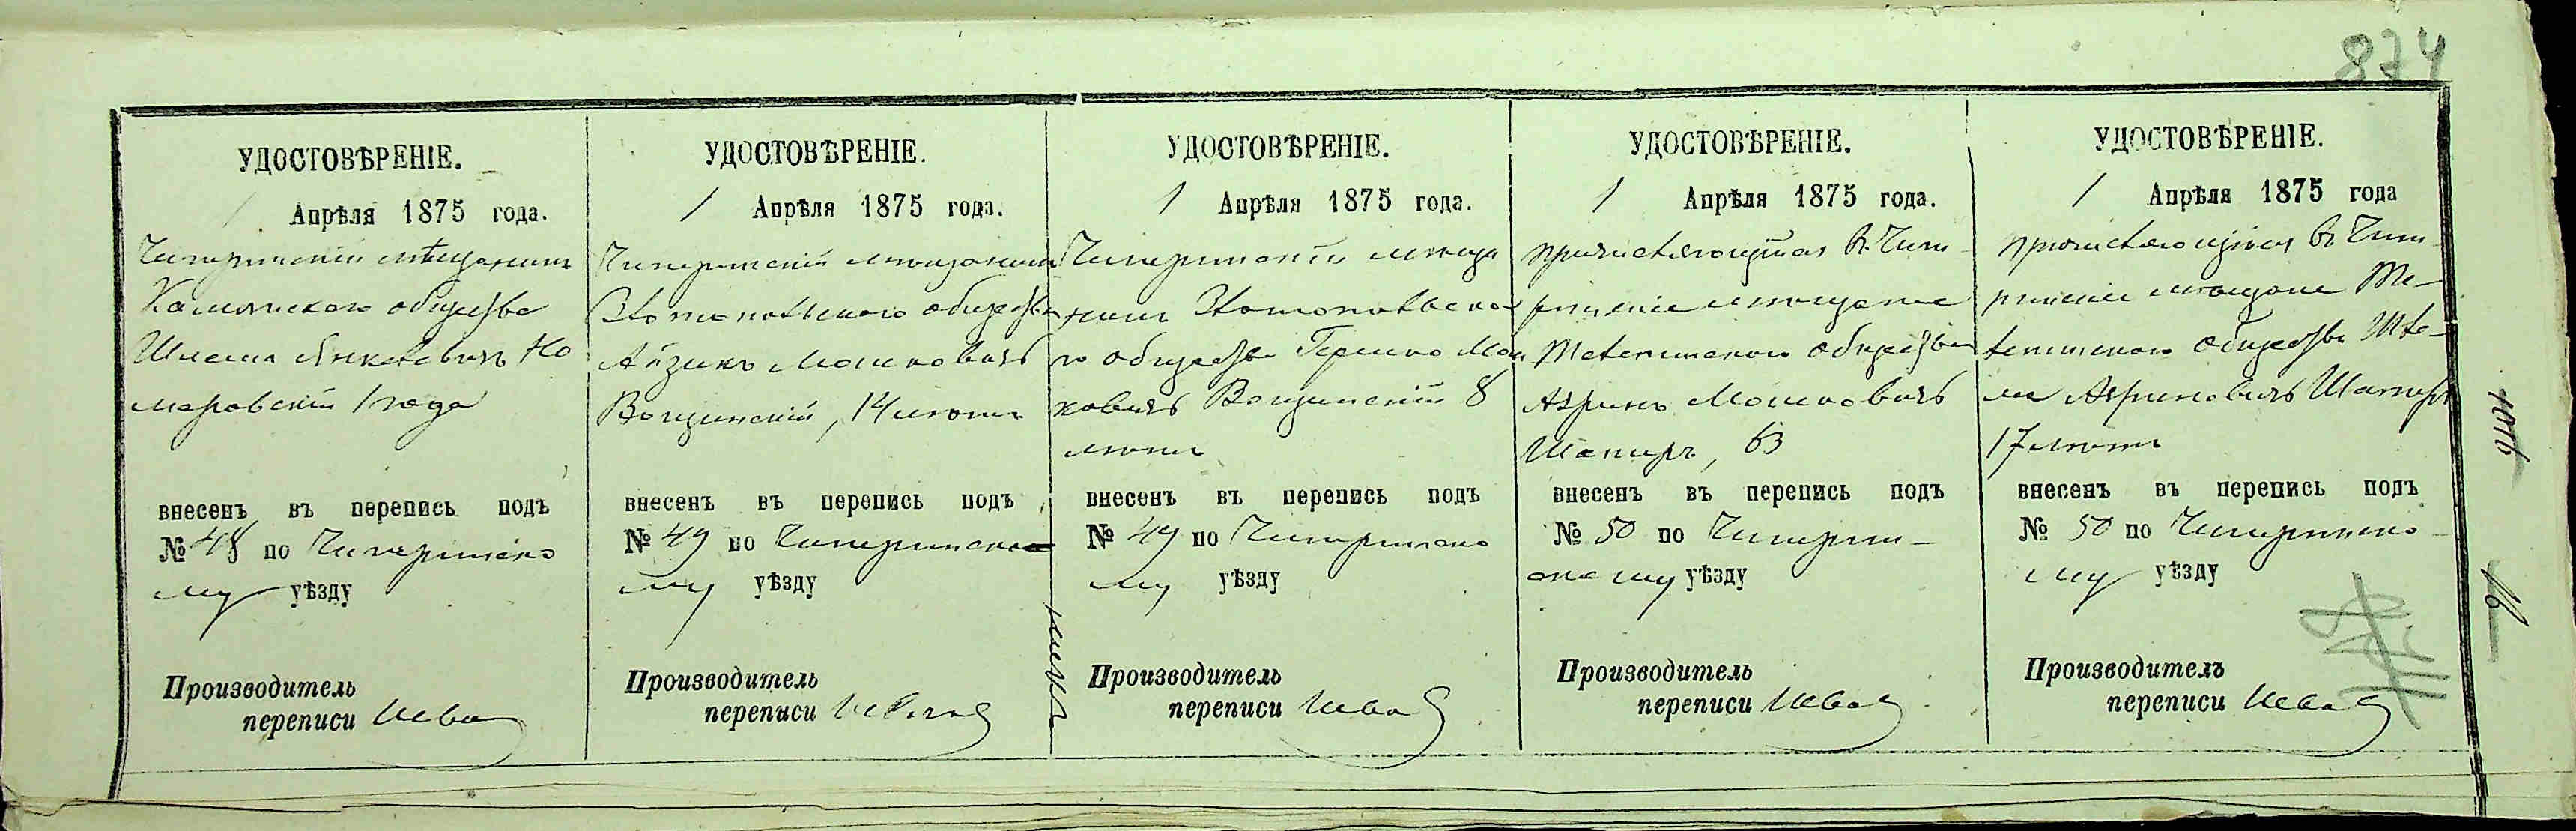 874
УДОСТОВѢРЕНІЕ.
1 Апрѣля 1875 года.
Чигиринскій мѣщанинъ
Каменскаго общества
Шлема Янкелевичъ Ко
маровскій 1 года
внесенъ въ перепись подъ
№ 48 по Чигиринско
му уѣзду
Производитель
переписи
УДОСТОВѢРЕНІЕ.
1 Апрѣля 1875 года.
Чигиринскій мѣщанинъ
Златопольскаго общества
Айзикъ Мошковичъ
Вощинскій, 14 лѣтъ
внесенъ въ перепись подъ
№ 49 по Чигиринско
му уѣзду
Производитель
переписи
УДОСТОВѢРЕНІЕ.
1 Апрѣля 1875 года.
Чигиринскій мѣща
нинъ Златопольска
го общества Гершко Мош
ковичъ Вощинскій 8
лѣтъ
внесенъ въ перепись подъ
№ 49 по Чигиринско
му уѣзду
Производитель
переписи
УДОСТОВѢРЕНІЕ.
1 Апрѣля 1875 года.
причисляющійся въ Чиги
ринскіе мѣщане
общества
Мошковичъ
Шапиръ, 63
внесенъ въ перепись подъ
№ 50 по Чигирин-
скому уѣзду
Производитель
переписи
УДОСТОВѢРЕНІЕ.
1 Апрѣля 1875 года
причисляющійся въ Чиги
ринскіе мѣщане
общества
Шапиръ
17 лѣтъ
внесенъ въ перепись подъ
№ 50 по Чигиринско-
му уѣзду
Производитель
переписи